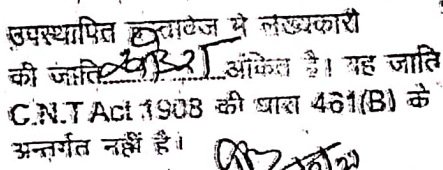 उपस्थापित दस्तावेज मे लेख्यकारी
की जाति अंकित है। यह जाति
C.N.T Act 1908 की धारा 461(B) के
अन्तर्गत नहीं है।